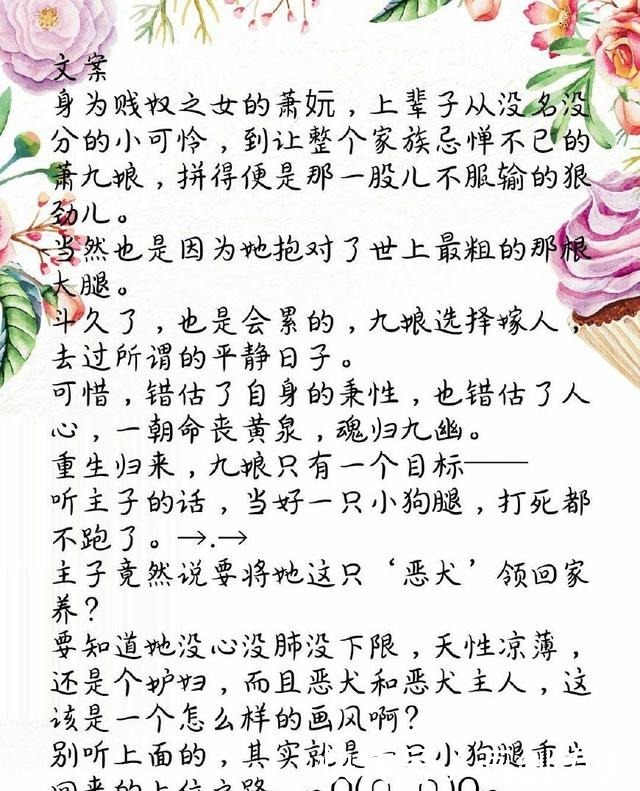 文案
身为贱奴之女的萧妧，上辈子从没名没
分的小可怜，到让整个家族忌惮不已的
萧九娘，拼得便是那一股儿不服输的狠
劲儿。
当然也是因为她抱对了世上最粗的那根
大腿。
斗久了，也是会累的，九娘选择嫁人，
去过所谓的平静日子。
可惜，错估了自身的秉性，也错估了人
心，一朝命丧黄泉，魂归九幽。
重生归来，九娘只有一个目标——
听主子的话，当好一只小狗腿，打死都
不跑了。→.→
主子竟然说要将她这只‘恶犬’领回家
养？
要知道她没心没肺没下限，天性凉薄，
还是个妒妇，而且恶犬和恶犬主人，这
该是一个怎么样的画风啊？
别听上面的，其实就是一只小狗腿重生
回来的上位之路